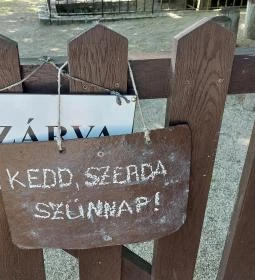 ZÁRVA
KEDD, SZERDA
SZÜNNAP!